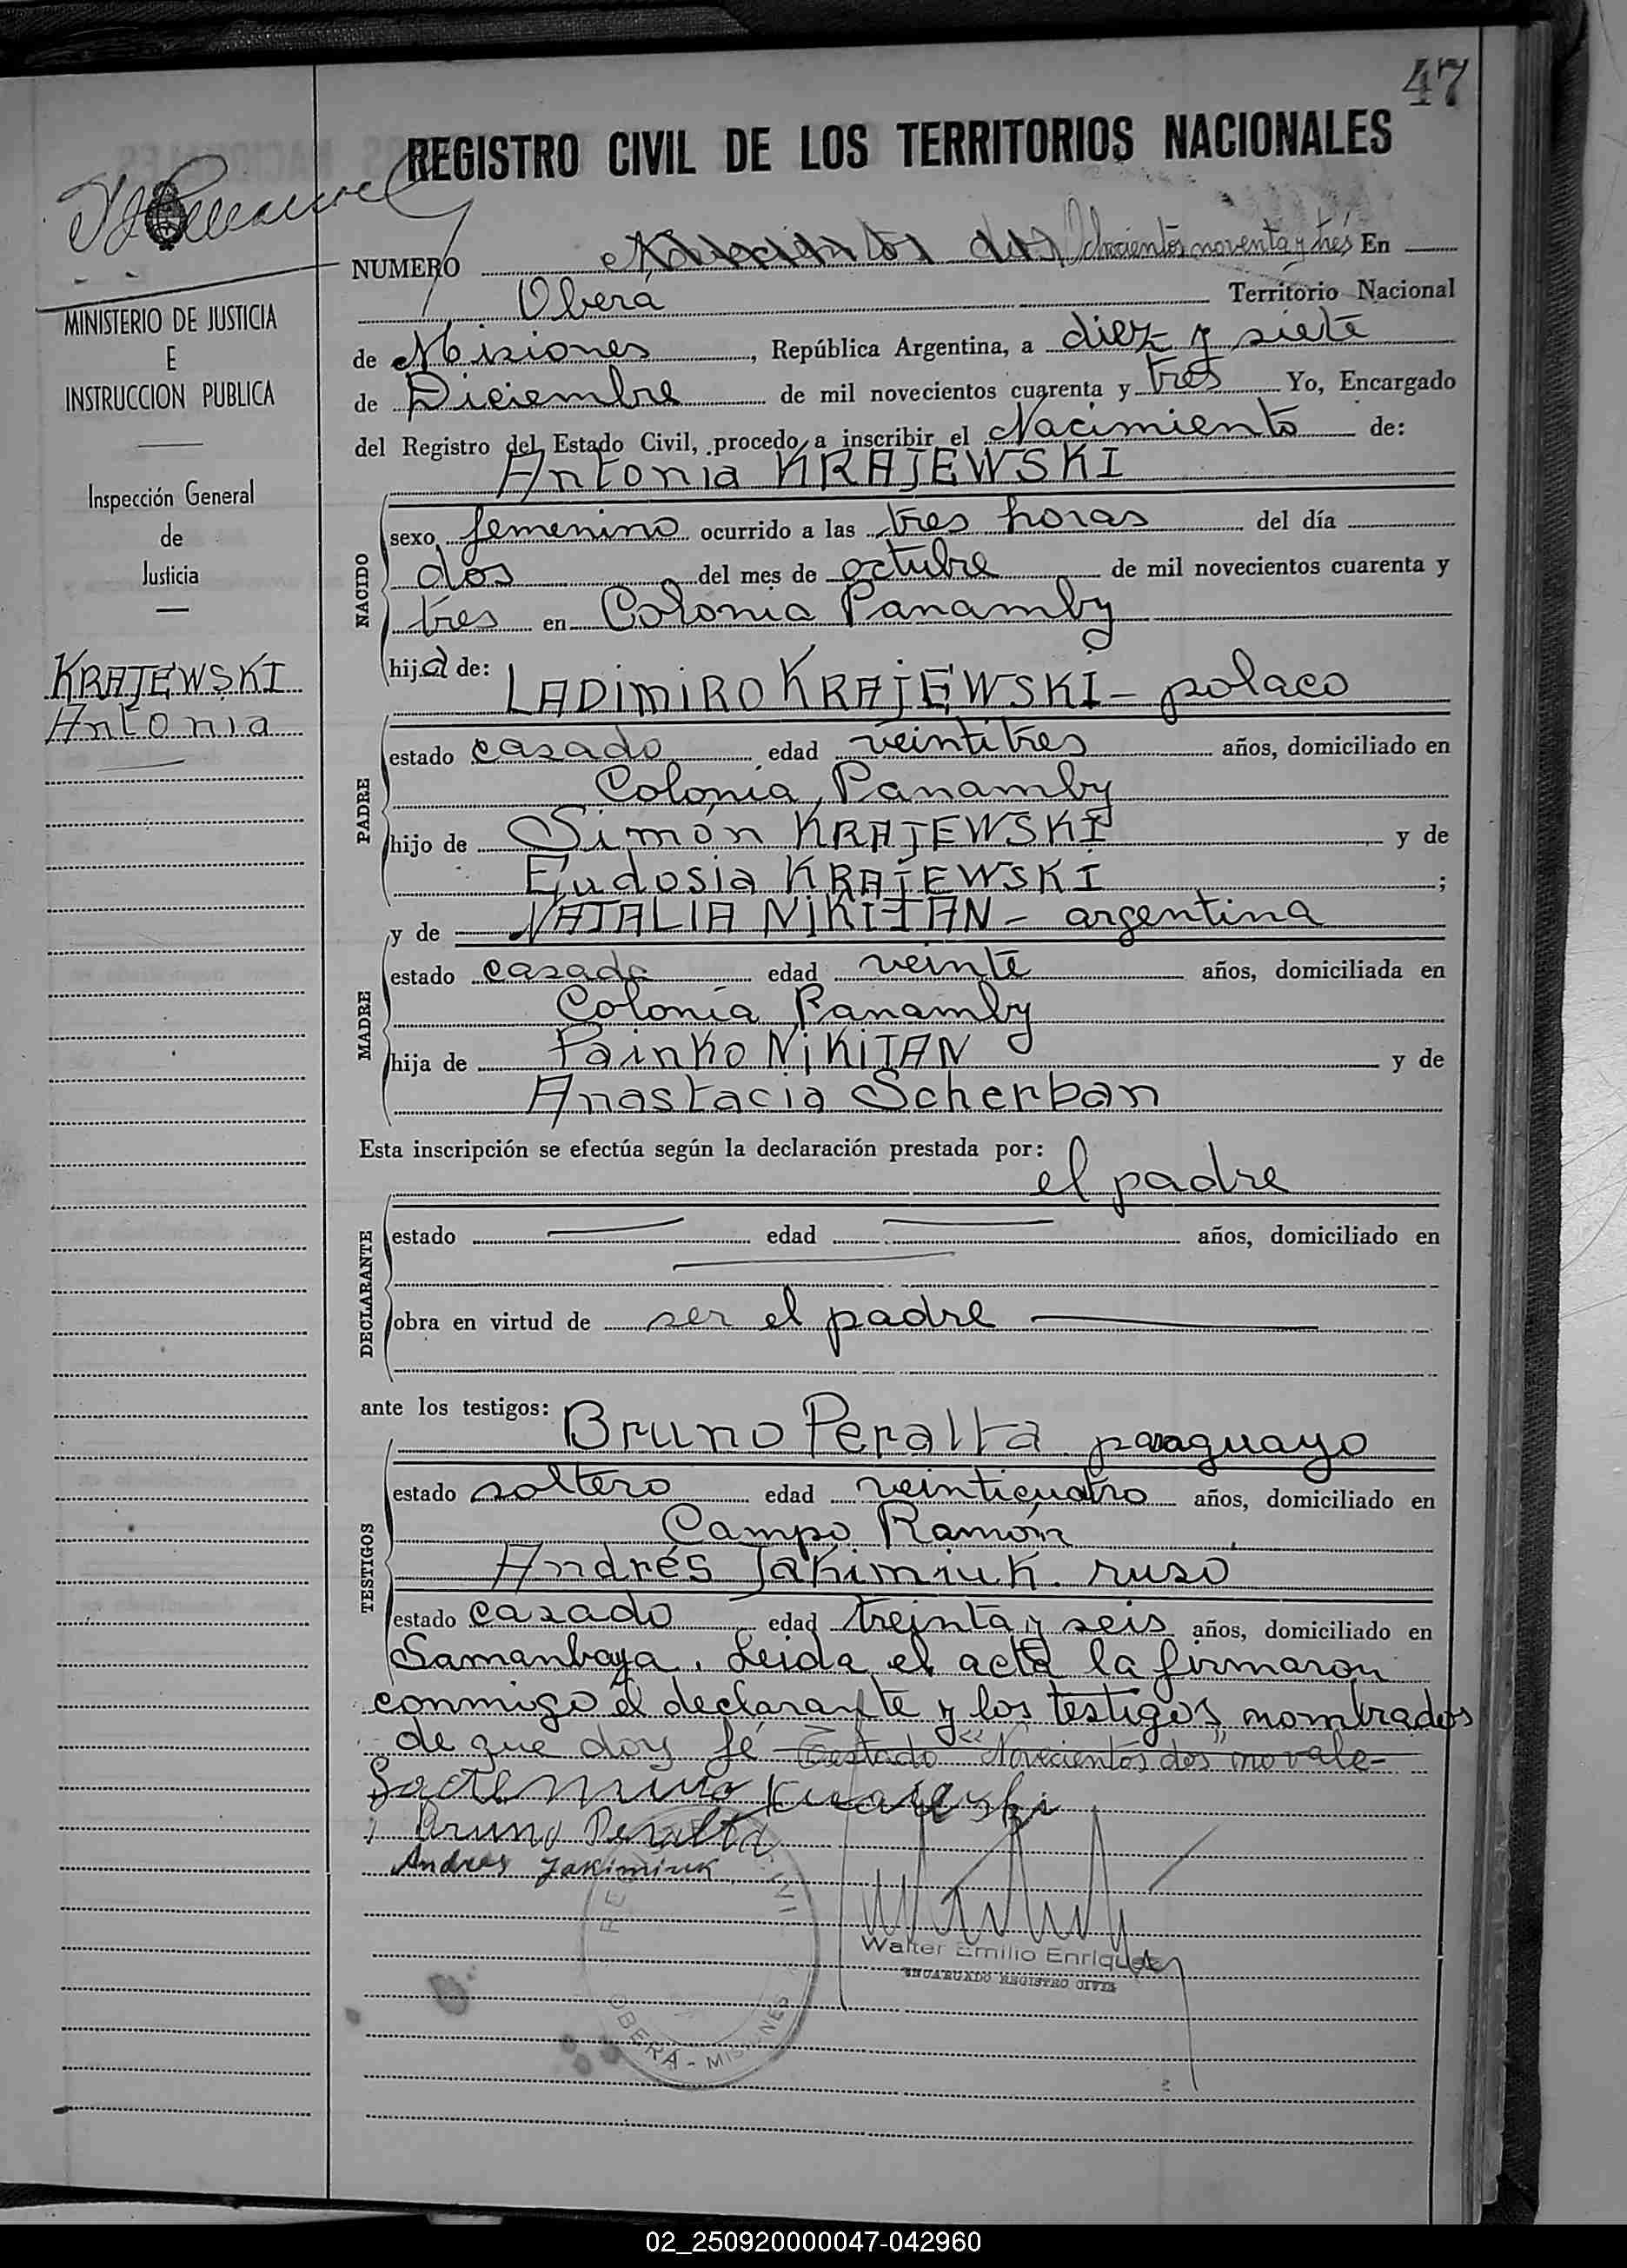 47
REGISTRO CIVIL DE LOS TERRITORIOS NACIONALES
NUMERO Novecientos dos Ochocientos noventa y trés En
Oberá Territorio Nacional
de Misiones, República Argentina, a diez y siete
de Diciembre de mil novecientos cuarenta y tres Yo, Encargado
del Registro del Estado Civil, procedo a inscribir el Nacimiento de:
Antonia KRAJEWSKI
MINISTERIO DE JUSTICIA
E
INSTRUCCION PUBLICA
Inspección General
de
Justicia
KRAJEWSKI
Antonia
NACIDO
sexo femenino ocurrido a las tres horas del día
dos del mes de octubre de mil novecientos cuarenta y
tres en Colonia Panamby
hija de:
LADIMIRO KRAJEWSKI - polaco
PADRE
estado casado edad veintitres años, domiciliado en
Colonia Panamby
hijo de Simón KRAJEWSKI y de
Eudosia KRAJEWSKI;
y de NATALIA NIKITAN - argentina
MADRE
estado casada edad veinte años, domiciliada en
Colonia Panamby
hija de Painko NIKITAN y de
Anastacia Scherban
Esta inscripción se efectúa según la declaración prestada por:
el padre
DECLARANTE
estado edad años, domiciliado en
obra en virtud de ser el padre
ante los testigos:
Bruno Peralta paraguayo
TESTIGOS
estado soltero edad veinticuatro años, domiciliado en
Campo Ramón
Andrés Jakimiuk ruso
estado casado edad treinta y seis años, domiciliado en
Samanbaya. Leida el acta la firmaron
conmigo el declarante y los testigos nombrados
de que doy fé - Testado "Novecientos dos" no vale -
Bruno Peralta
Andres Jakimiuk
Walter Emilio Enriquez
ENCARGADO REGISTRO CIVIL
OBERÁ - MISIONES
02_250920000047-042960